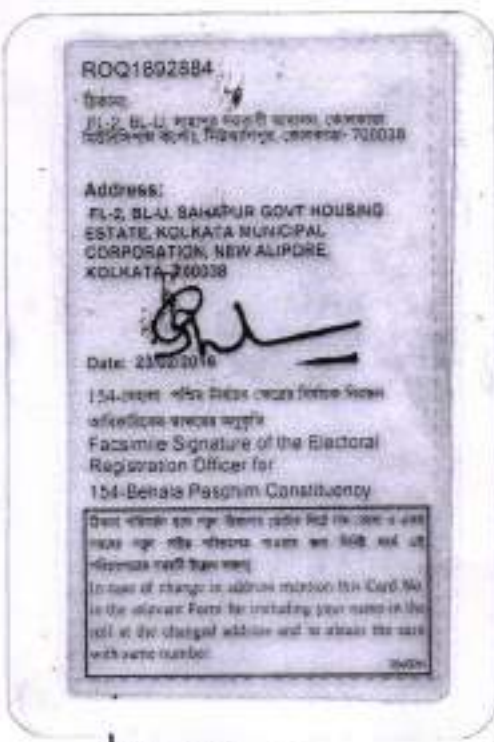 ROQ1892884
ঠিকানা:
FL-2, BL-U, সাহাপুর সরকারী আবাসন, কোলকাতা
মিউনিসিপাল কর্পো, নিউআলিপুর, কোলকাতা- 700038
Address:
FL-2, BL-U, SAHAPUR GOVT HOUSING
ESTATE, KOLKATA MUNICIPAL
CORPORATION, NEW ALIPORE,
KOLKATA-700038
Date: 23/02/2016
154-বেহালা পশ্চিম নির্বাচন ক্ষেত্রের নির্বাচক নিবন্ধন
আধিকারিকের স্বাক্ষরের অনুকৃতি
Facsimile Signature of the Electoral
Registration Officer for
154-Behala Paschim Constituency
In case of change in address mention this Card No.
in the relevant Form for including your name in the
roll at the changed address and to obtain the card
with same number.